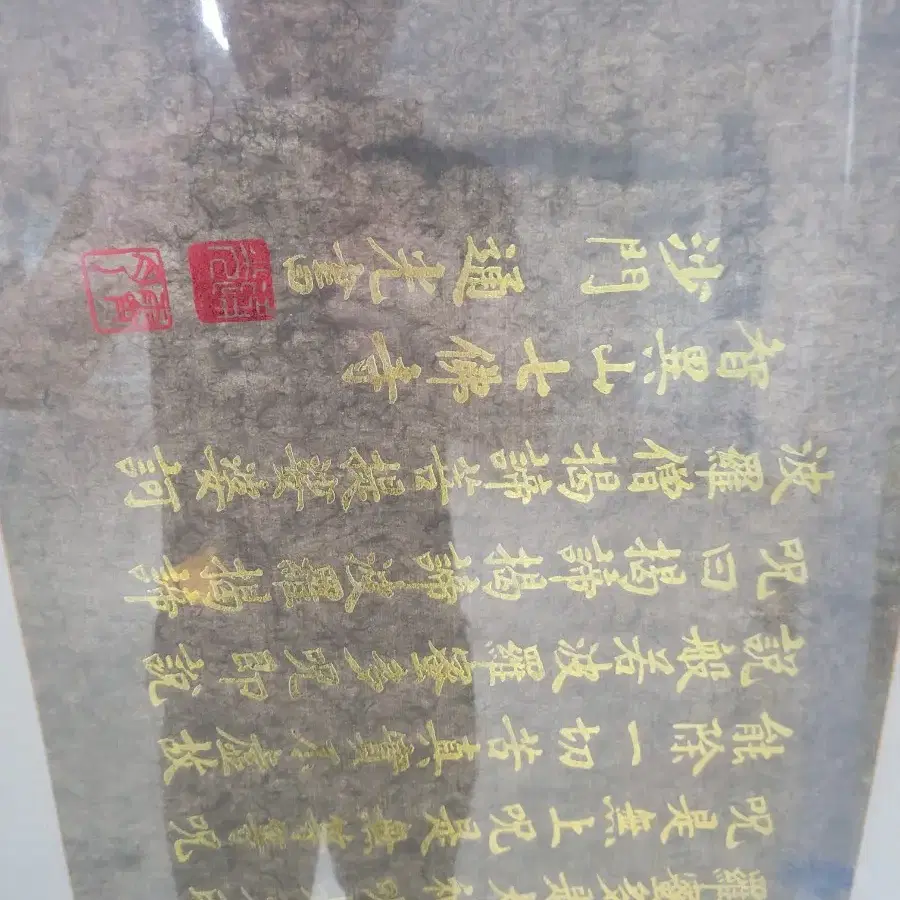 羅蜜多是大神
呪是無上呪是無等等呪
能除一切苦真實不虛故
說般若波羅蜜多呪即說
呪曰揭諦揭諦波羅揭諦
波羅僧揭諦菩提娑婆訶
智異山七佛寺
沙門 通光書